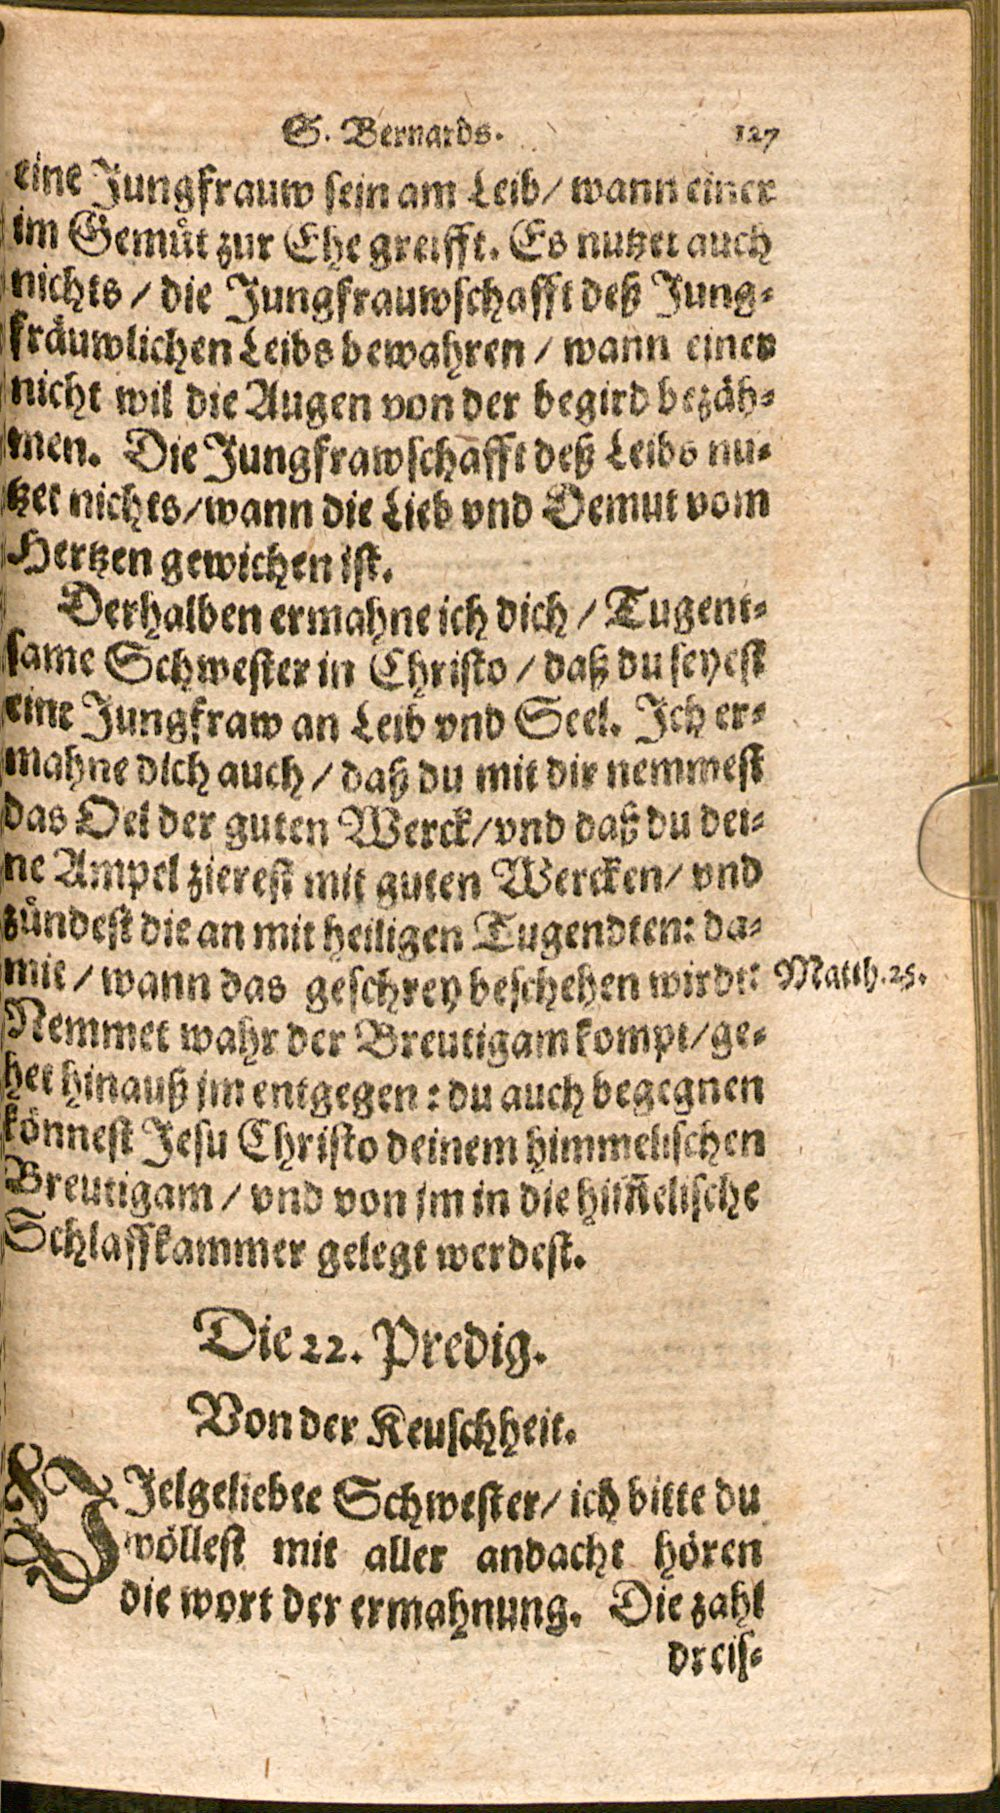 S. Bernards. 127
eine Jungfrauw sein am Leib/ wann einer
im Gemüt zur Ehe greifft. Es nutzet auch
nichts / die Jungfrauwschafft deß Jung-
fräuwlichen Leibs bewahren / wann einer
nicht wil die Augen von der begird bezäh-
men. Die Jungfrawschafft deß Leibs nu-
tzet nichts/wann die Lieb vnd Demut vom
Hertzen gewichen ist.
Derhalben ermahne ich dich / Tugent-
same Schwester in Christo / daß du seyest
eine Jungfraw an Leib vnd Seel. Ich er-
mahne dich auch / daß du mit dir nemmest
das Oel der guten Werck/vnd daß du dei-
ne Ampel zierest mit guten Wercken/ vnd
zündest die an mit heiligen Tugendten: da-
mit / wann das geschrey beschehen wirdt: Matth.25.
Nemmet wahr der Breutigam kompt/ge-
het hinauß jm entgegen: du auch begegnen
könnest Jesu Christo deinem himmelischen
Breutigam / vnd von jm in die him̃elische
Schlaffkammer gelegt werdest.
Die 22. Predig.
Von der Keuschheit.
VJelgeliebte Schwester/ ich bitte du
wöllest mit aller andacht hören
die wort der ermahnung. Die zahl
dreis-